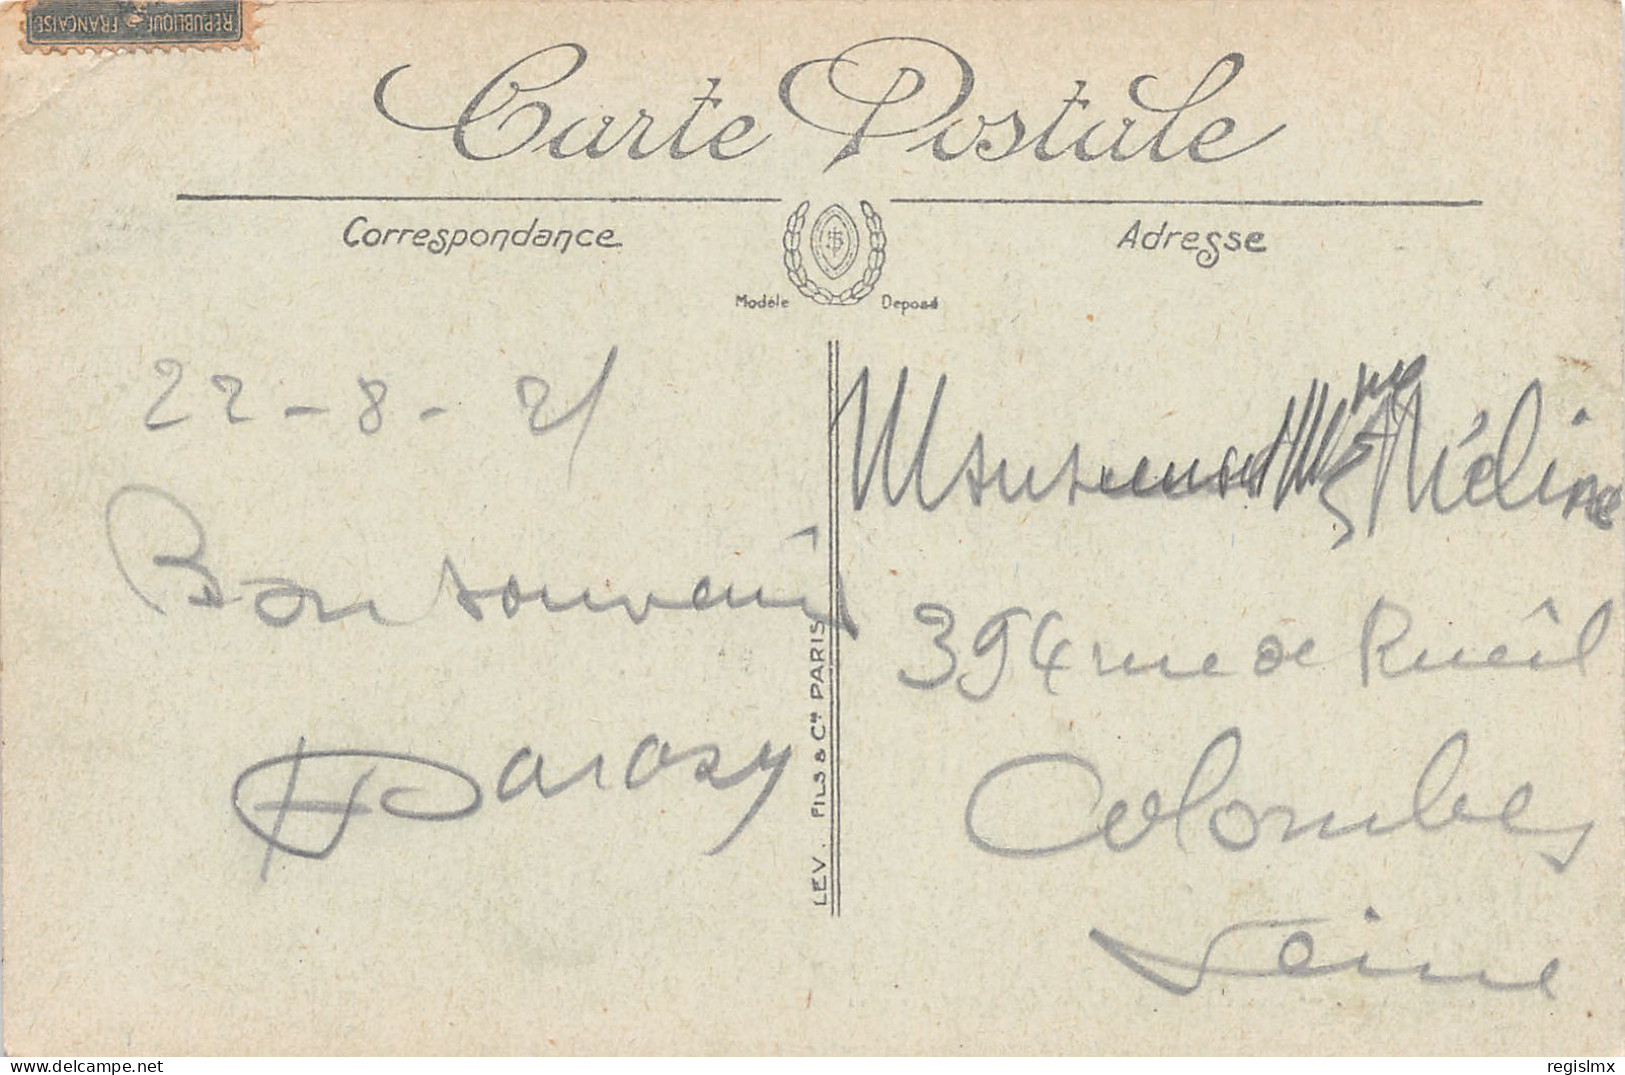 RÉPUBLIQUE FRANÇAISE
Carte Postale
Correspondance
Adresse
Modèle Deposé
22-8-21
Bon souvenir
LEV. FILS & Cie PARIS
Monsieur et Mme Méline
394 rue de Rueil
Colombes
Seine
delcampe.net
regislmx